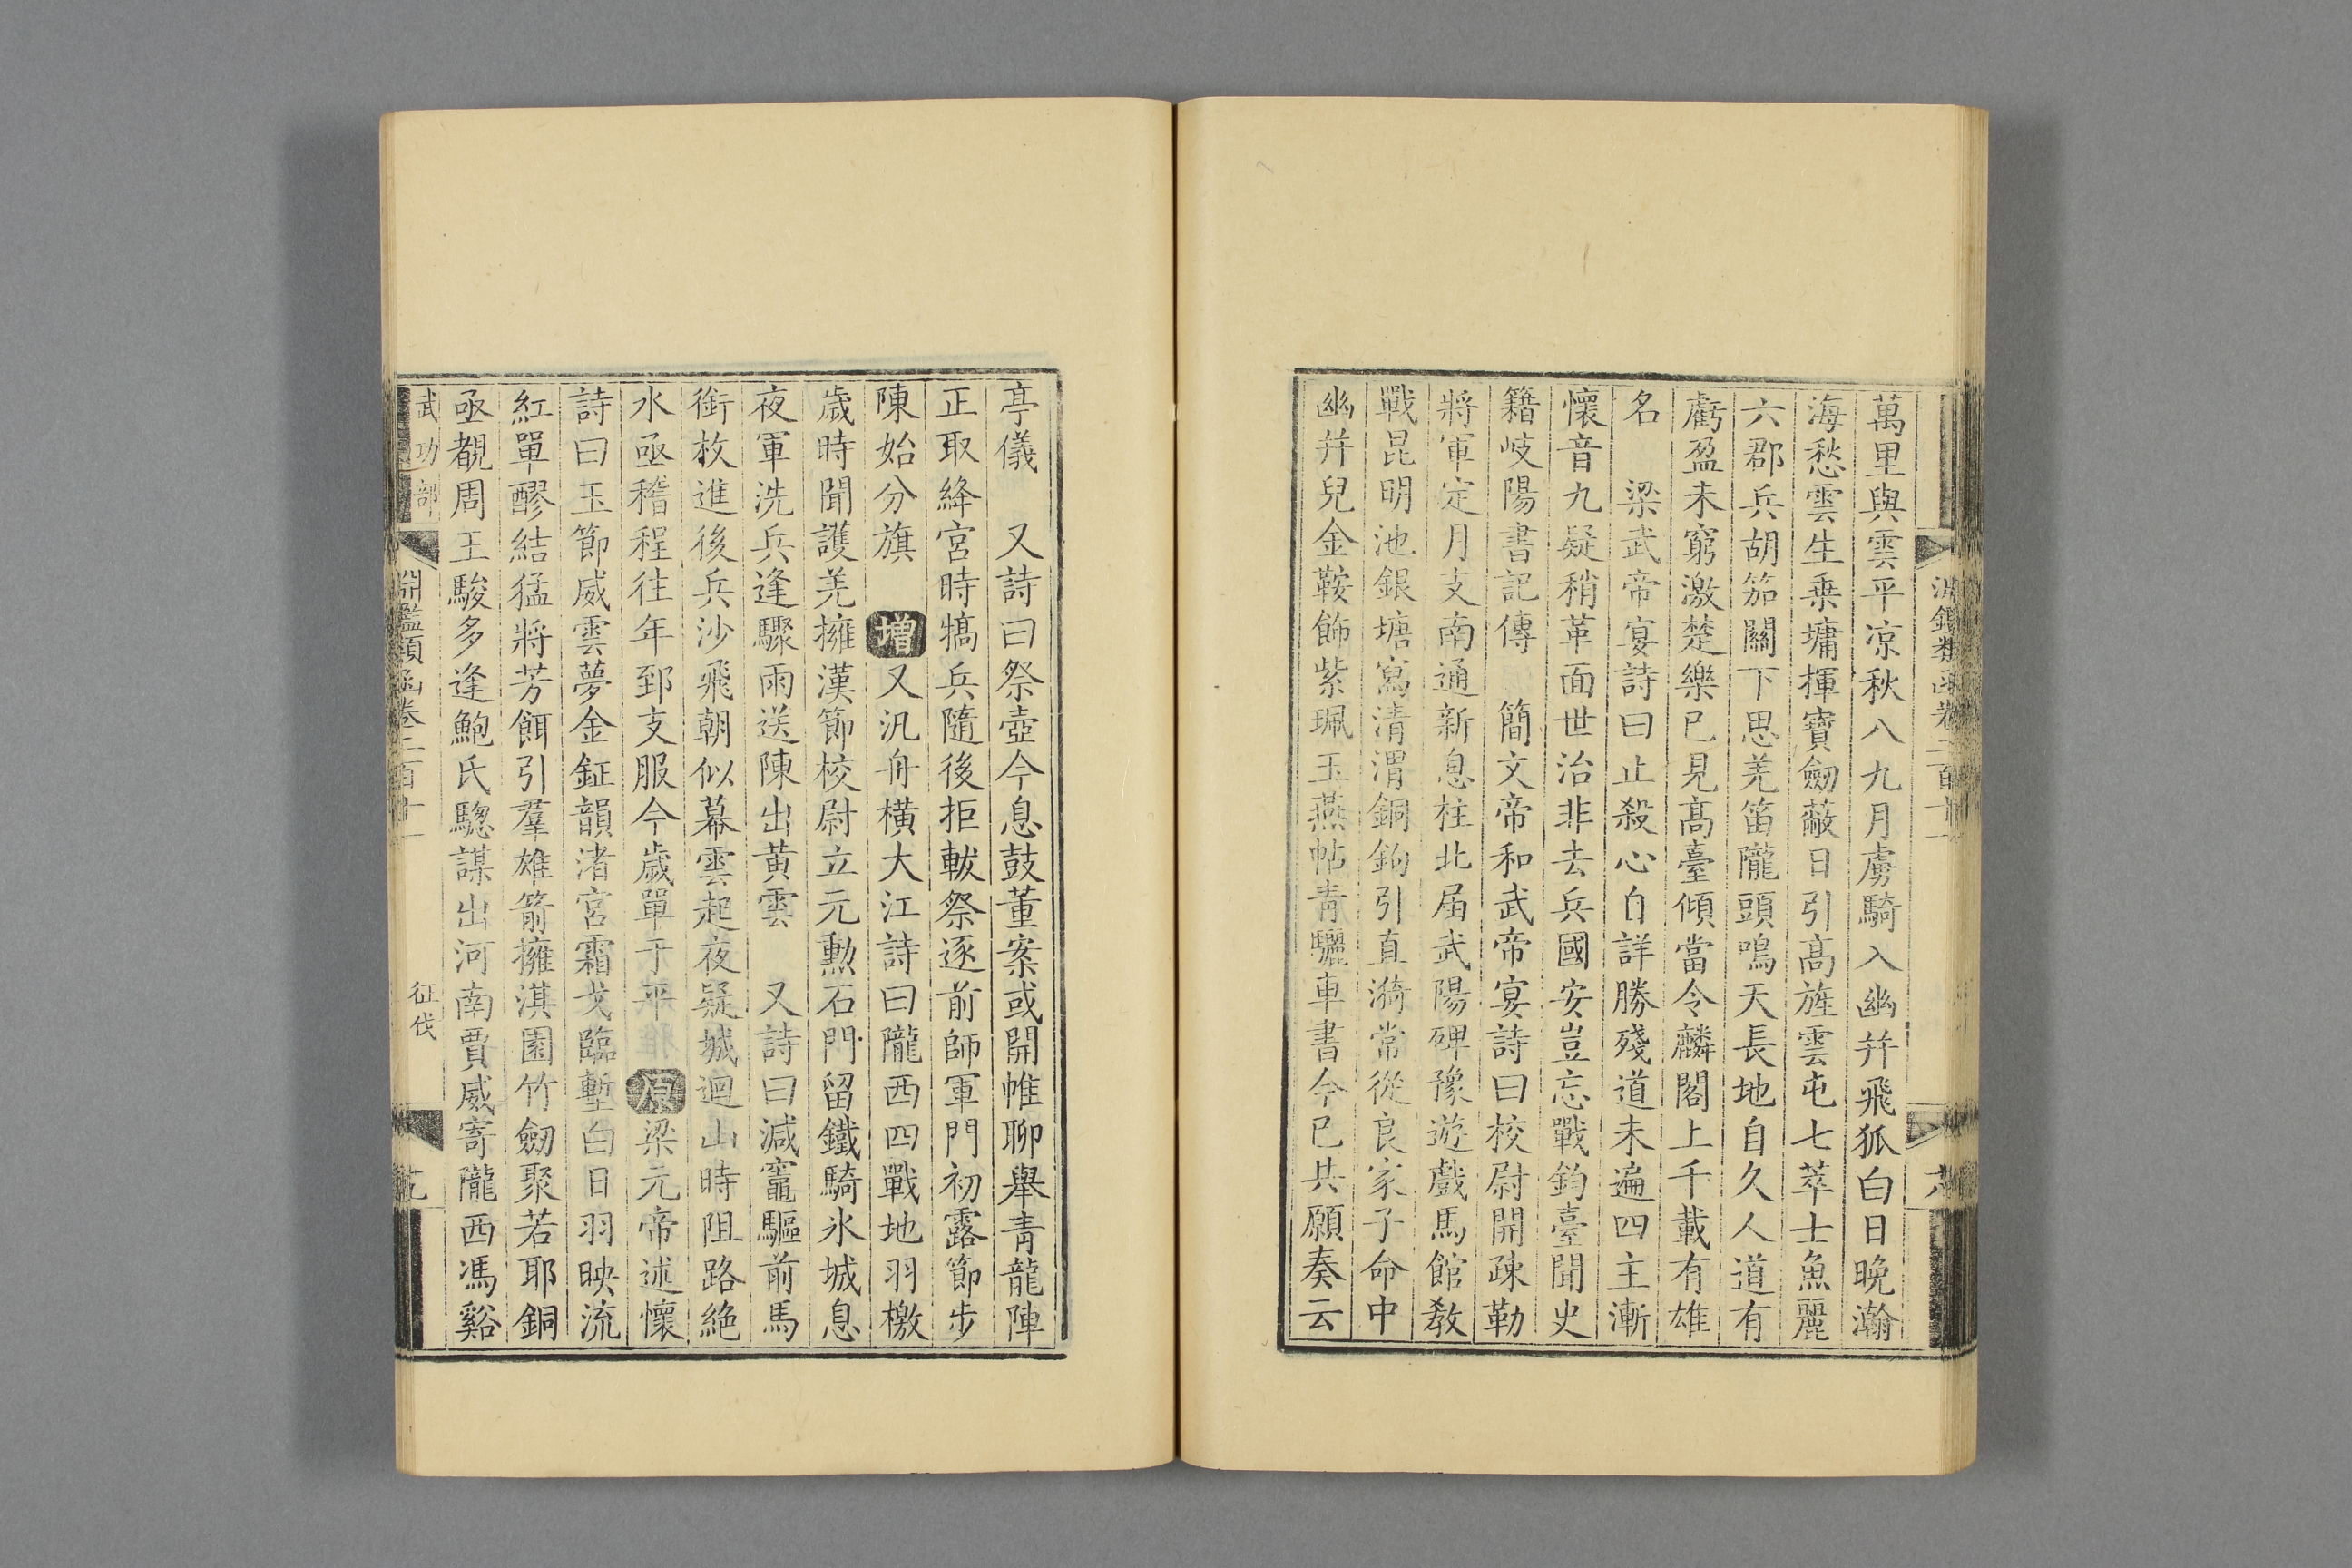 萬里與雲平凉秋八九月虜騎入幽幷飛狐白日晚瀚
海愁雲生乗墉揮寶劒蔽日引髙旌雲屯七萃士魚麗
六郡兵胡笳關下思羌笛隴頭鳴天長地自久人道有
虧盈未窮激楚樂已見髙臺傾當令麟閣上千載有雄
名　梁武帝宴詩曰止殺心自詳勝殘道未遍四主漸
懷音九疑稍革面世治非去兵國安豈忘戰鈞臺聞史
籍岐陽書記傳　簡文帝和武帝宴詩曰校尉開疎勒
將軍定月支南通新息柱北届武陽碑豫遊戲馬館教
戰昆明池銀塘寫清渭銅鉤引直漪常從良家子命中
幽幷兒金鞍飾紫珮玉燕帖青驪車書今已共願奏云
亭儀　又詩曰祭壺今息鼓董案或開帷聊舉青龍陣
正取絳宮時犒兵隨後拒軷祭逐前師軍門初露節步
陳始分旗　增又汎舟横大江詩曰隴西四戰地羽檄
歲時聞護羌擁漢節校尉立元勲石門留鐵騎氷城息
夜軍洗兵逢驟雨送陳出黄雲　又詩曰減竈驅前馬
銜枚進後兵沙飛朝似幕雲起夜疑城迴山時阻路絶
水亟稽程往年郅支服今歲單于平　原梁元帝述懷
詩曰玉節威雲夢金鉦韻渚宮霜戈臨塹白日羽映流
紅單醪結猛將芳餌引羣雄箭擁淇園竹劒聚若耶銅
亟覩周王駿多逢鮑氏驄謀出河南賈威寄隴西馮谿
武功部
淵鑑類函卷二百十一
征伐